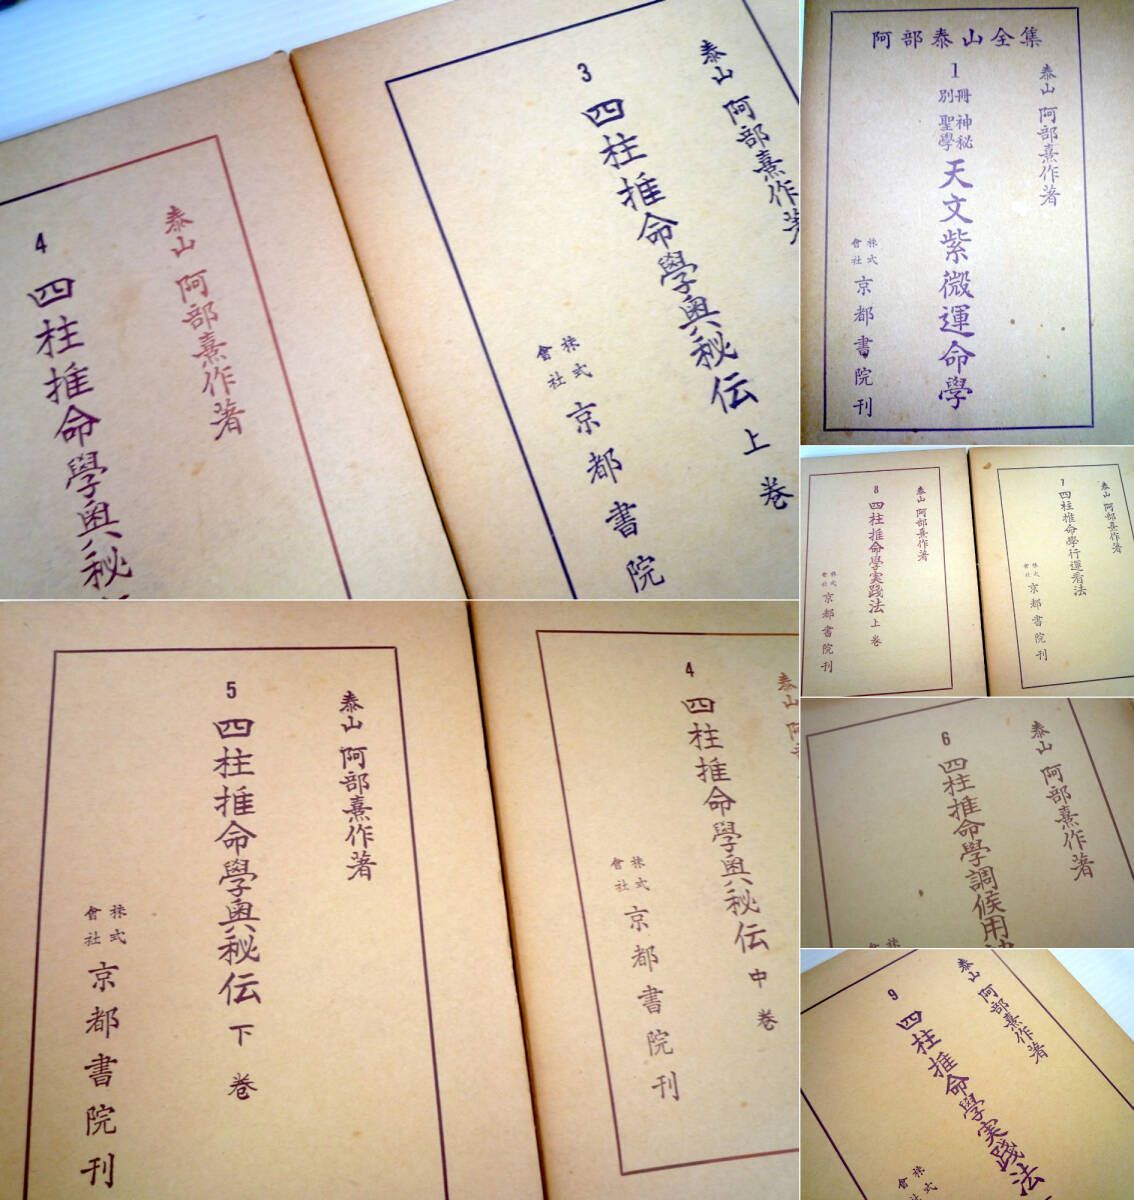 泰山 阿部熹作著
3 四柱推命學奥秘伝 上巻
株式會社 京都書院
泰山 阿部熹作著
4 四柱推命學奥秘
阿部泰山全集
泰山 阿部熹作著
1 別冊 神秘聖學 天文紫微運命學
株式會社 京都書院刊
泰山 阿部熹作著
7 四柱推命學行運看法
株式會社 京都書院刊
泰山 阿部熹作著
8 四柱推命學実踐法 上巻
株式會社 京都書院刊
泰山 阿部熹作著
6 四柱推命学調候用
泰山
4 四柱推命學奥秘伝 中巻
株式會社 京都書院刊
泰山 阿部熹作著
5 四柱推命學奥秘伝 下巻
株式會社 京都書院刊
泰山 阿部熹作著
9 四柱推命學実踐法
株式會社